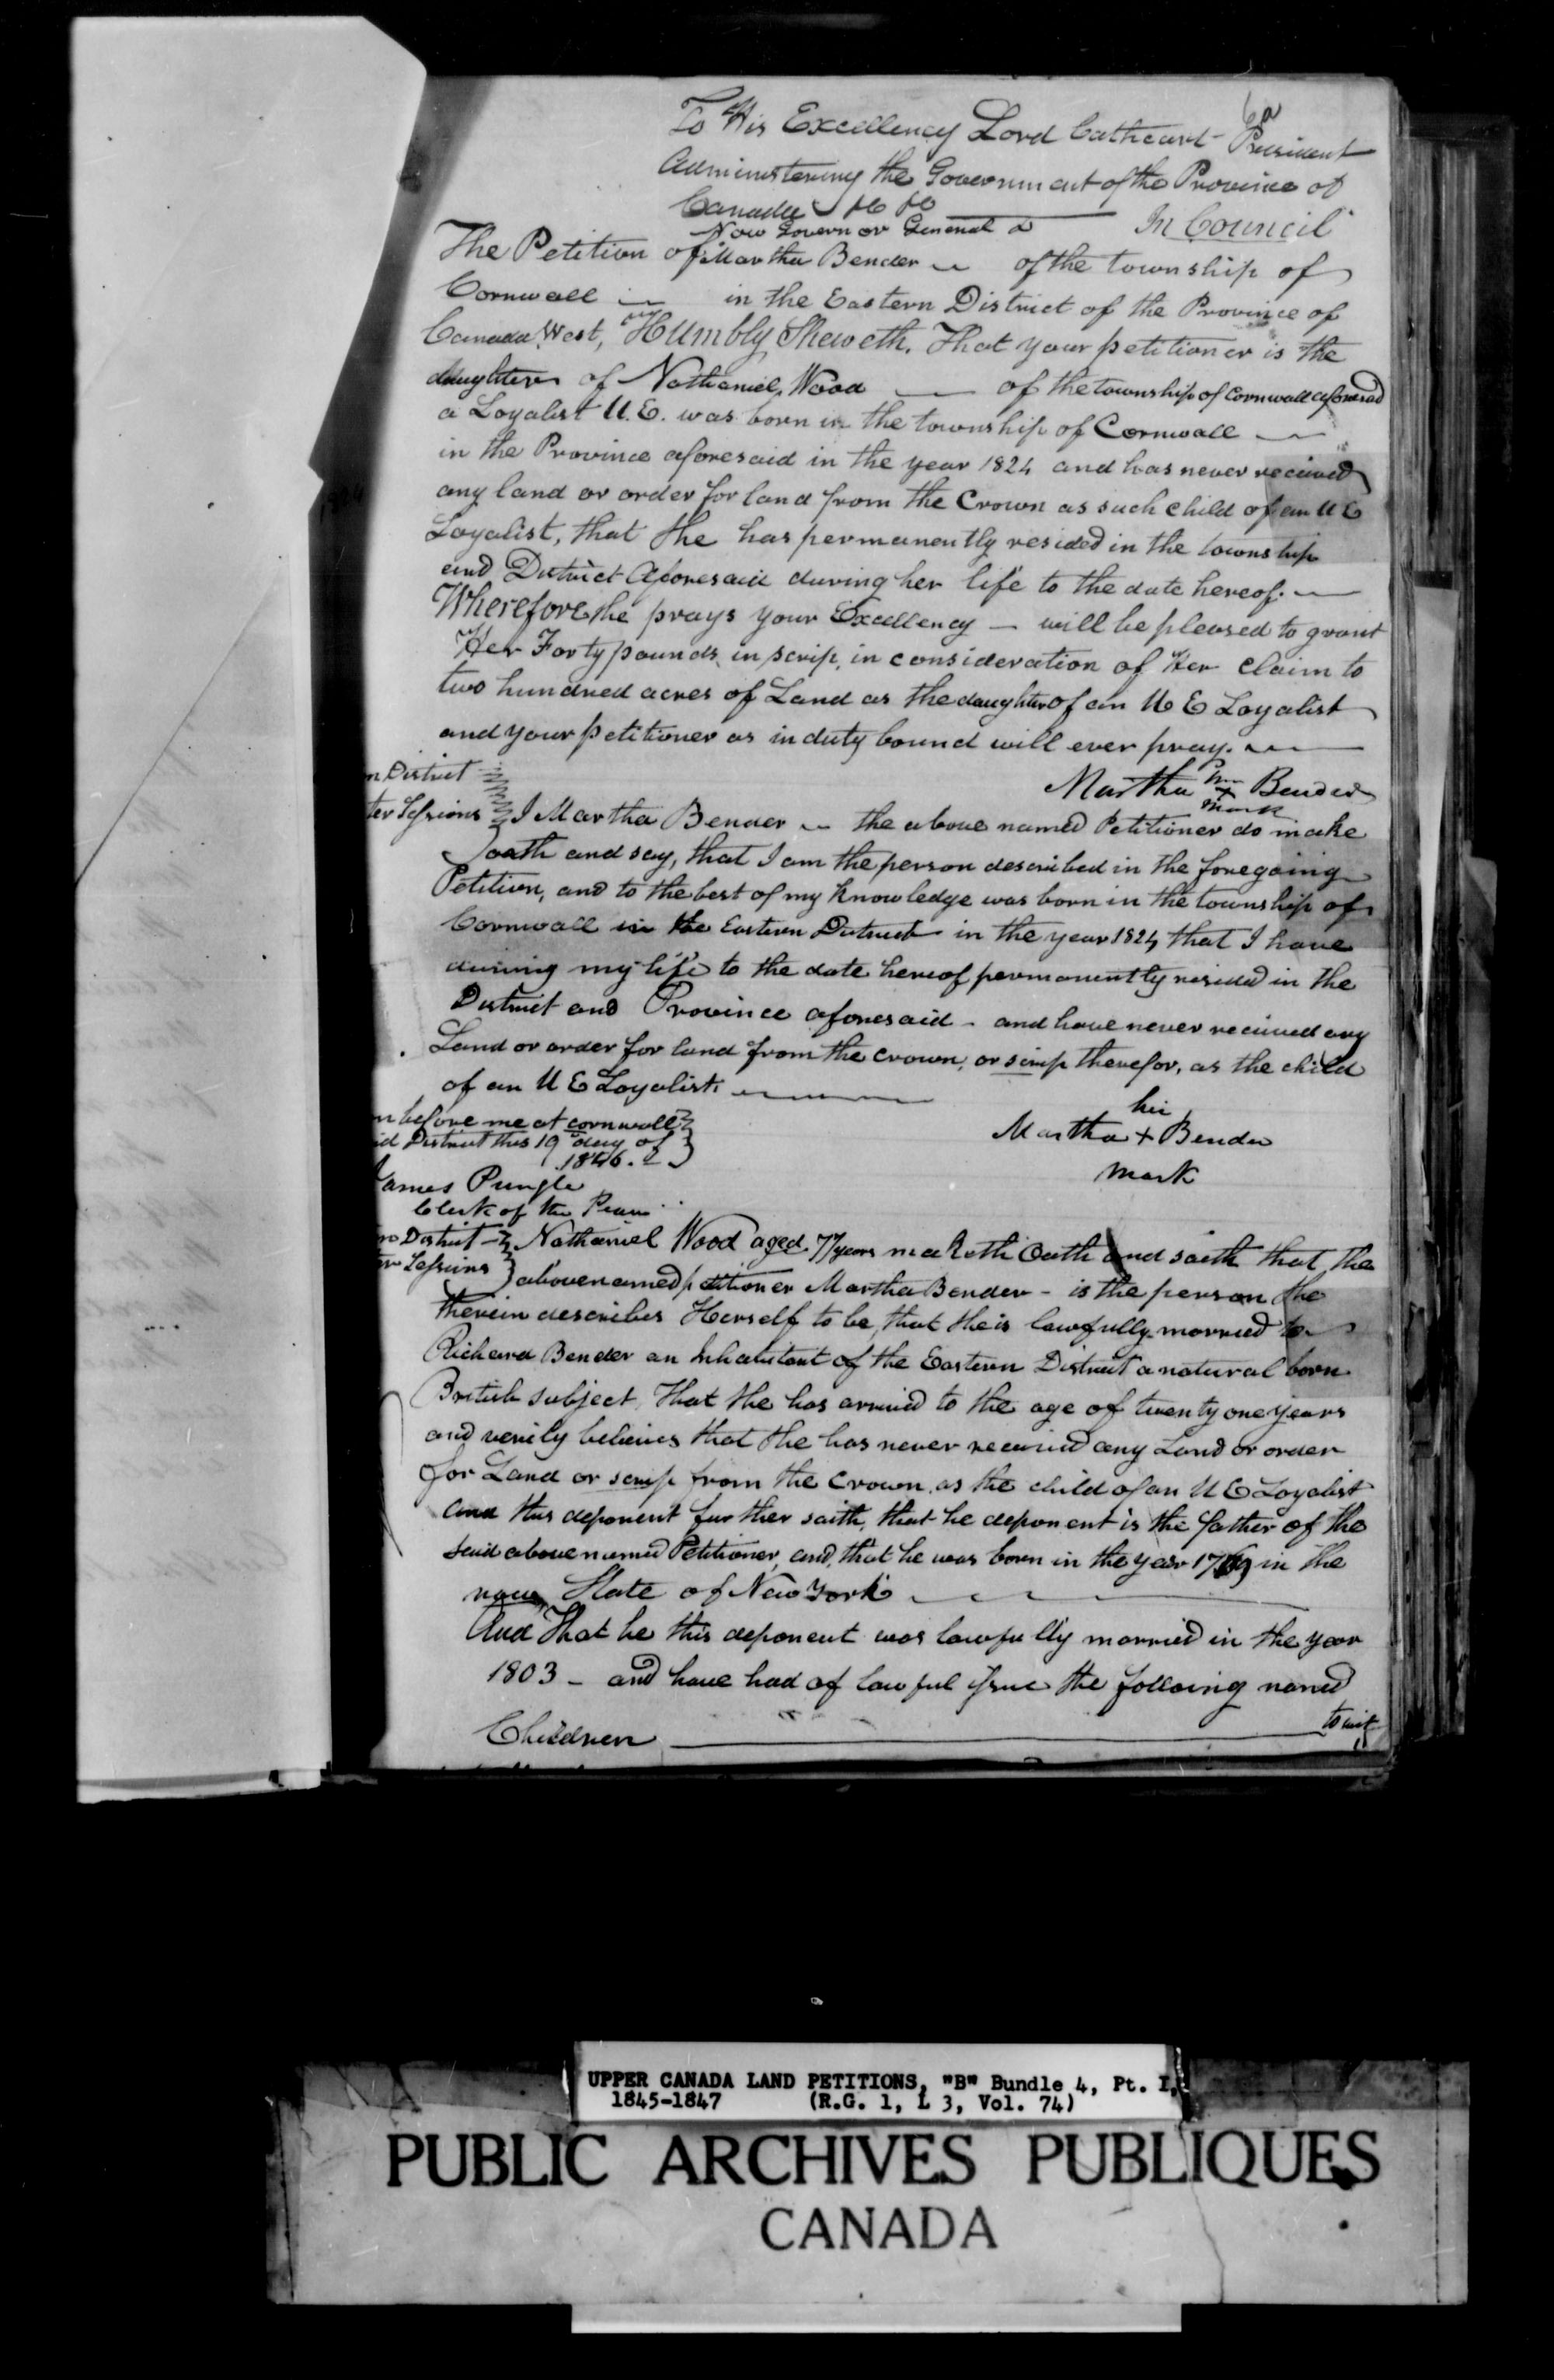 6a
To His Excellency Lord Cathcart President
Administering the Government of the Province of
Canada &c &c
Now Governor General &
In Council
The Petition of Martha Bender of the township of
Cornwall in the Eastern District of the Province of
Canada West, Humbly Sheweth, That your petitioner is the
daughter of Nathaniel Wood of the township of Cornwall aforesaid
a Loyalist U.E. was born in the township of Cornwall
in the Province aforesaid in the year 1824 and has never received
any land or order for land from the Crown as such child of an U E
Loyalist, that She has permanently resided in the township
and District Aforesaid during her life to the date hereof.
Wherefore she prays your Excellency – will be pleased to grant
Her Forty pounds in scrip, in consideration of Her claim to
two hundred acres of Land as the daughter of an U E Loyalist
and your petitioner as in duty bound will ever pray.
n District
Martha + Bender
mark
ter Sessions } I Martha Bender the above named Petitioner do make
oath and say, that I am the person described in the foregoing
Petition, and to the best of my knowledge was born in the township of
Cornwall in the Eastern District in the year 1824 that I have
during my life to the date hereof permanently resided in the
District and Province aforesaid – and have never received any
Land or order for land from the crown, or scrip therefor, as the child
of an U E Loyalist.
n before me at cornwall
id District this 19 day of
1846.
her
Martha + Bender
mark
James Pringle
Clerk of the Peace
n District } Nathaniel Wood aged 77 years maketh Oath and saith that the
er Sessions } above named petitioner Martha Bender – is the person She
therein describes Herself to be, that She is lawfully married to
Richard Bender an Inhabitant of the Eastern District a natural born
British subject, That She has arrived to the age of twenty one years
and verily believes that She has never received any Land or order
for Land or scrip from the Crown as the child of an U E Loyalist
and this deponent further saith, that he deponent is the father of the
said above named Petitioner, and, that he was born in the year 1769 in the
now State of New York
And That he this deponent was lawfully married in the year
1803 – and have had of lawful issue the following named
Children to wit
UPPER CANADA LAND PETITIONS, "B" Bundle 4, Pt. I,
1845-1847 (R.G. 1, L 3, Vol. 74)
PUBLIC ARCHIVES PUBLIQUES
CANADA